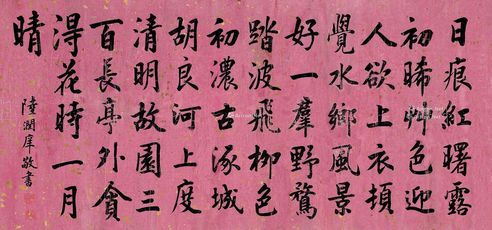 日痕紅曙露
初晞艸色迎
人欲上衣頓
覺水鄉風景
好一羣野鶩
踏波飛柳色
初濃古涿城
胡良河上度
清明故園三
百長亭外貪
淂花時一月
晴
陸潤庠敬書